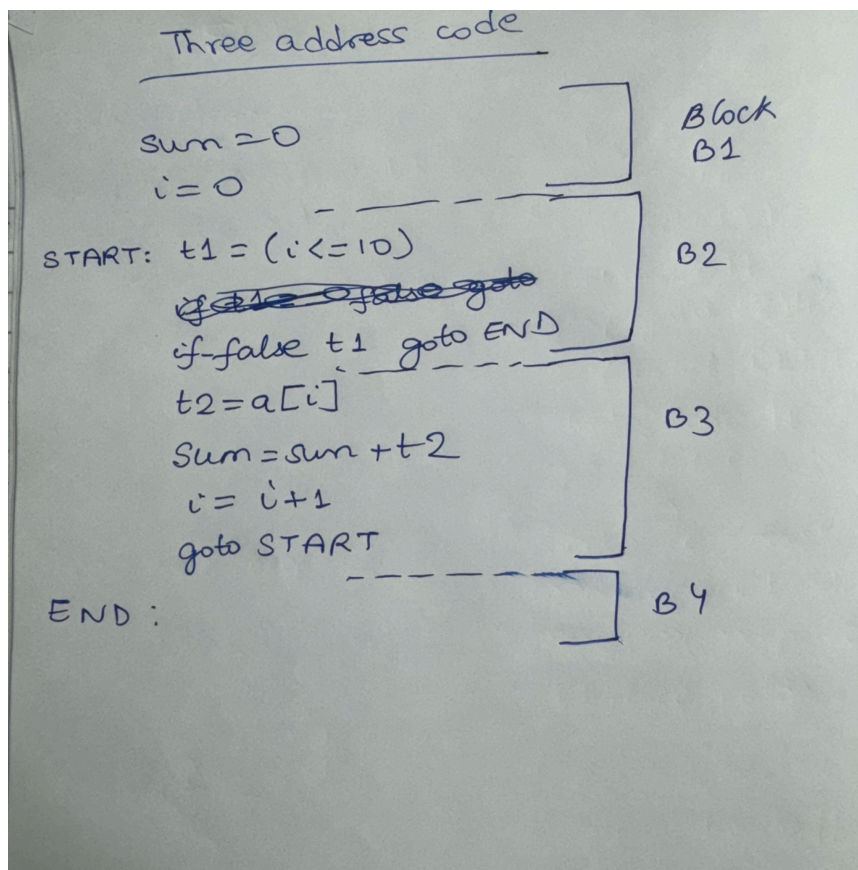 Three address code
sum = 0
Block
B1
i = 0
START: t1 = (i <= 10)
B2
if-false t1 goto END
t2 = a[i]
B3
Sum = sum + t2
i = i+1
goto START
END :
B4